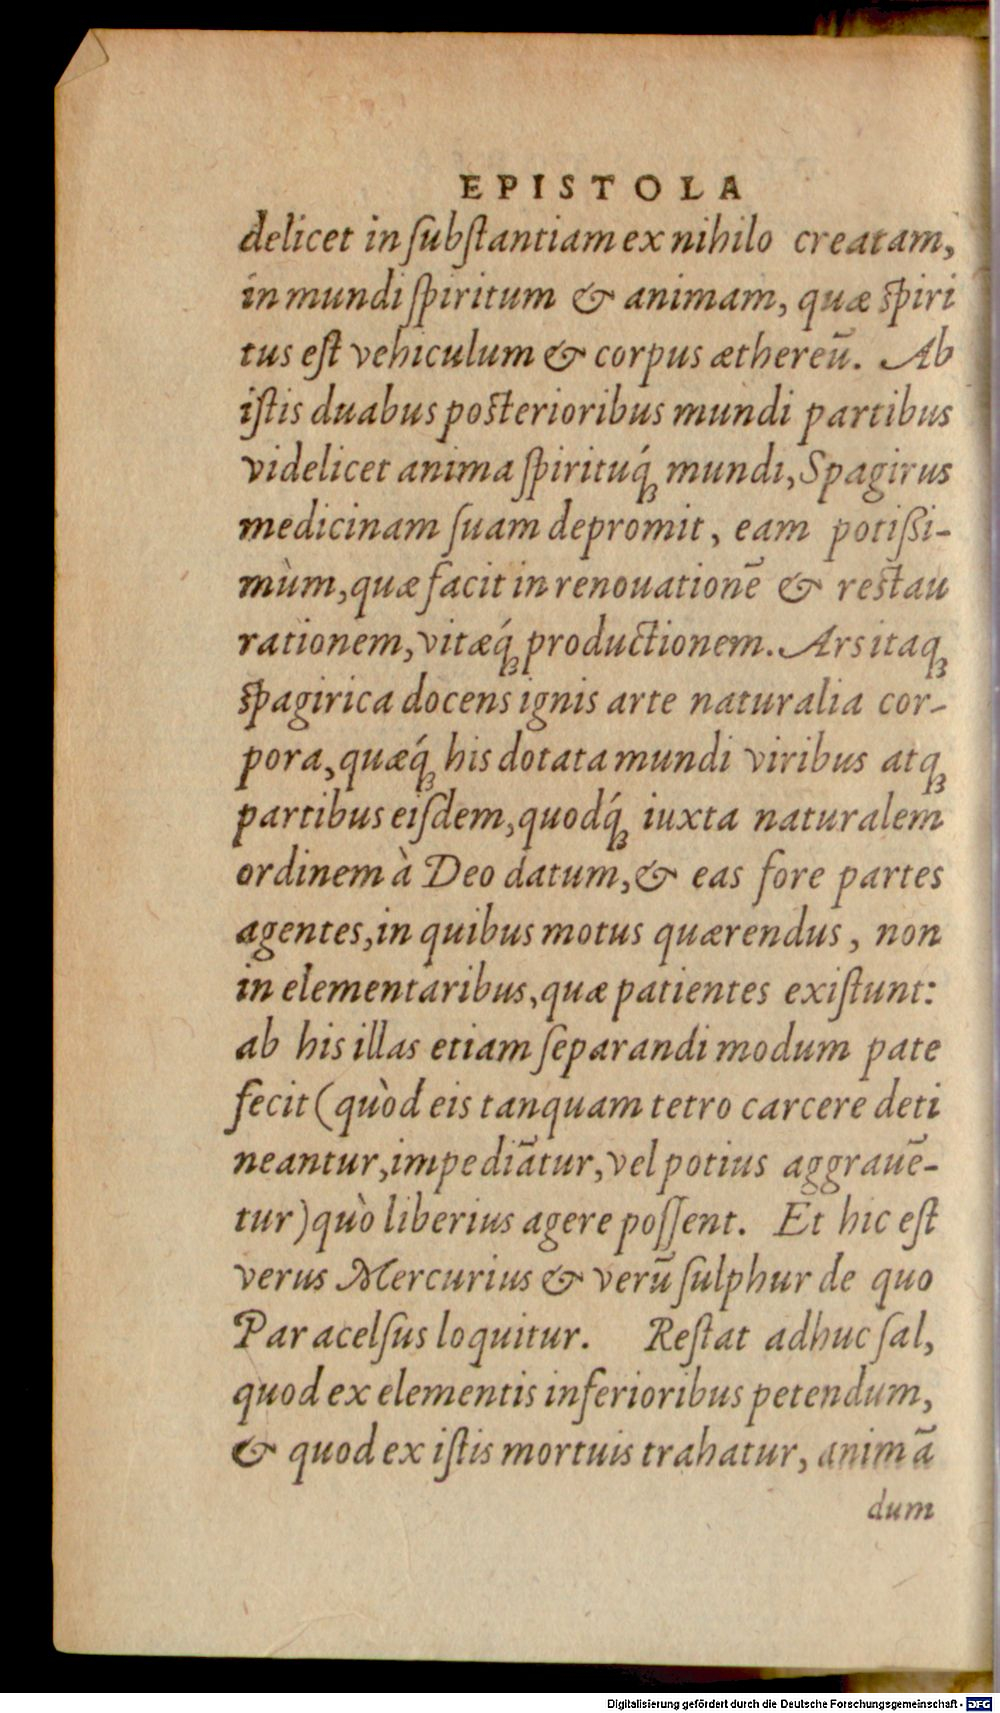 EPISTOLA
delicet in ſubſtantiam ex nihilo creatam,
in mundi ſpiritum & animam, quæ ſpiri
tus eſt vehiculum & corpus æthereũ. Ab
iſtis duabus poſterioribus mundi partibus
videlicet anima ſpirituq́ꝫ mundi, Spagirus
medicinam ſuam depromit, eam potißi-
mùm, quæ facit in renouationẽ & reſtau
rationem, vitæq́ꝫ productionem. Ars itaqꝫ
ſpagirica docens ignis arte naturalia cor-
pora, quæq́ꝫ his dotata mundi viribus atqꝫ
partibus eiſdem, quodq́ꝫ iuxta naturalem
ordinem à Deo datum, & eas fore partes
agentes, in quibus motus quærendus, non
in elementaribus, quæ patientes exiſtunt:
ab his illas etiam ſeparandi modum pate
fecit (quòd eis tanquam tetro carcere deti
neantur, impediãtur, vel potius aggrauẽ-
tur) quò liberius agere poſſent. Et hic eſt
verus Mercurius & verũ ſulphur de quo
Paracelſus loquitur. Reſtat adhuc ſal,
quod ex elementis inferioribus petendum,
& quod ex iſtis mortuis trahatur, animã
dum
Digitalisierung gefördert durch die Deutsche Forschungsgemeinschaft - DFG